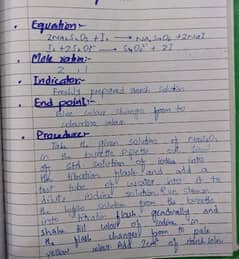 Equation:-
2Na2S2O3 + I2 → Na2S4O6 + 2NaI
I2 + 2S2O3⁻ → S4O6⁻ + 2I
Mole ratio:-
2 : 1
Indicator:-
Freshly prepared starch solution
End point:-
Blue colour changes from to
colourless colour
Procedure:-
Take the given solution of Na2S2O3
in the burette Pipette out
of std solution of iodine into
the titration flask and add a
test tube of water into it to
dilute iodine solution Run steam
the hypo solution from the burette
into titration flask generally and
shake till colour of iodine in
the flask changes from to pale
yellow colour Add 2cm³ of starch solun